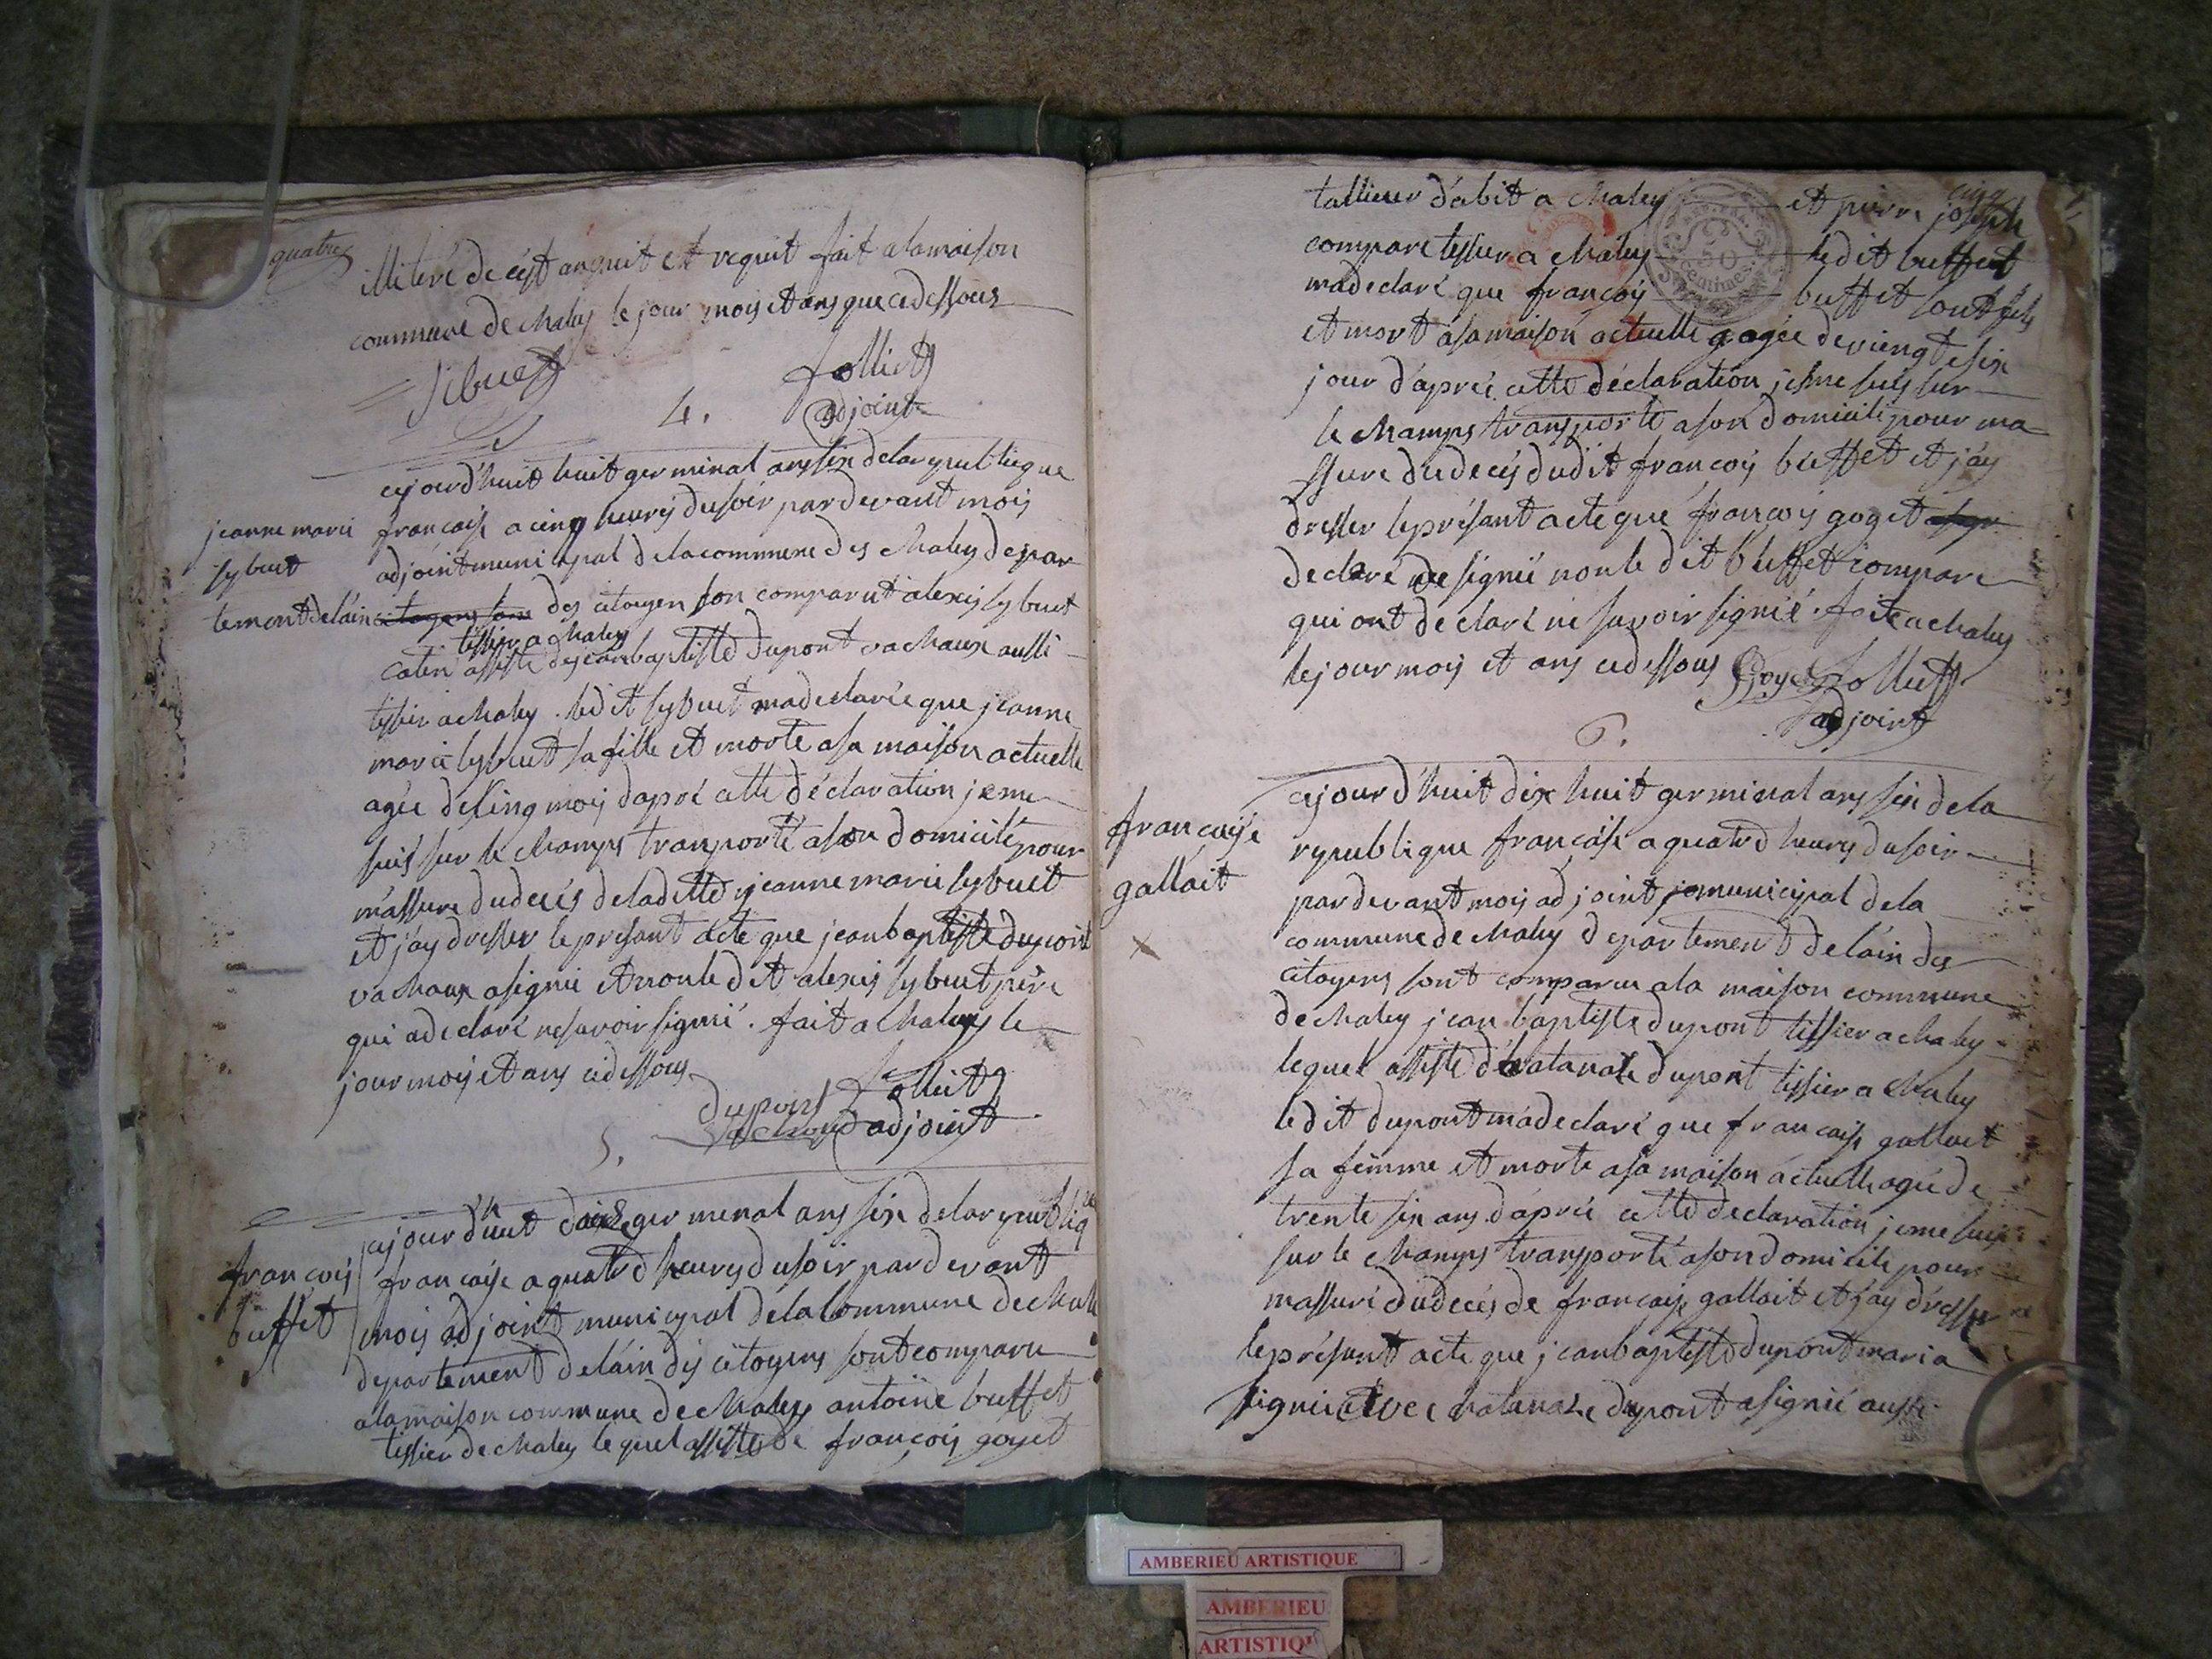 quatre
illiteré de cést anquit et requit fait a lamaison
commune de chaley le jour mois et ans que cedessous
Sibuet
folliet
adjoint
4.
ajourd'huit huit germinal ans six delarepublique
jeanne marie
sybuet
francaise a cinq heurs dusoir pardevant mois
adjoint municipal delacommune des chaley depar
tement delain citoyens son des citoyen son comparut alexis sybuet
tissier a chaley
catin assisté dejeanbaptiste dupont vachaux aussi
tissier a chaley. ledit sybuet madeclarée que jeanne
marie sybuet sa fille et morte asa maison actuelle
agée desinq mois dapré cette déclaration jeme
suis sur le champs transporté ason domicile pour
m'assure dudecés deladitte jeanne marie sybuet
et j'ay dresser le présant acte que jeanbaptiste dupont
vachaux asignie et nonledit alexis sybuet père
qui adeclaré nesavoir signié. fait a chaley le
jour mois et ans cidessous
dupont
vachoud
folliet
adjoint
5.
ajourd'huit douse germinal ans six delarepublique
francois
buffet
francaise aquatre heurs dusoir pardevant
mois adjoint municipal delacommune dechale
departement delain des citoyens sontcomparu
alamaison commune dechaley antoine buffet
tissier dechaley lequel assisté de françois goyet
cinq
tallieur d'abit a chaley et pierre joseph
compare tissur a chaley ledit buffet
50 centimes
madeclaré que françois buffet sont fils
et mort asamaison actuelle agée devingt six
jour d'apreé cette déclaration jesme suis sur
le champs transporté ason domicile pour ma
ssure dudecés dudit françois buffet et j'ay
dresser leprésant acte que françois goyet
declaré de signié nonle dit buffet compare
qui ont declaré ne savoir signié. fait a chaley
lejour mois et ans cidessous
Goyet
folliet
adjoint
6.
ajourd'huit dix huit germinal ans six dela
francaise
gallait
republique francaise a quatre heurs dusoir
pardevant mois adjoint municipal dela
commune de chaley departement delain des
citoyens sont comparu ala maison commune
de chaley jean baptiste dupont tissier a chaley
lequel assisté d'hatanaze dupont tissier a chaley
ledit dupont madeclaré que francaise gallait
sa femme et morte asa maison actuelle agée de
trente six ans d'apreé cette declaration jeme suis
sur le champs transporté ason domicile pour
massuré dudecés de francaise gallait et j'ay dresser
leprésant acte que jeanbaptiste dupont maria
signié avec hatanaze dupont asignié aussi
AMBERIEU ARTISTIQUE
AMBERIEU
ARTISTIQU